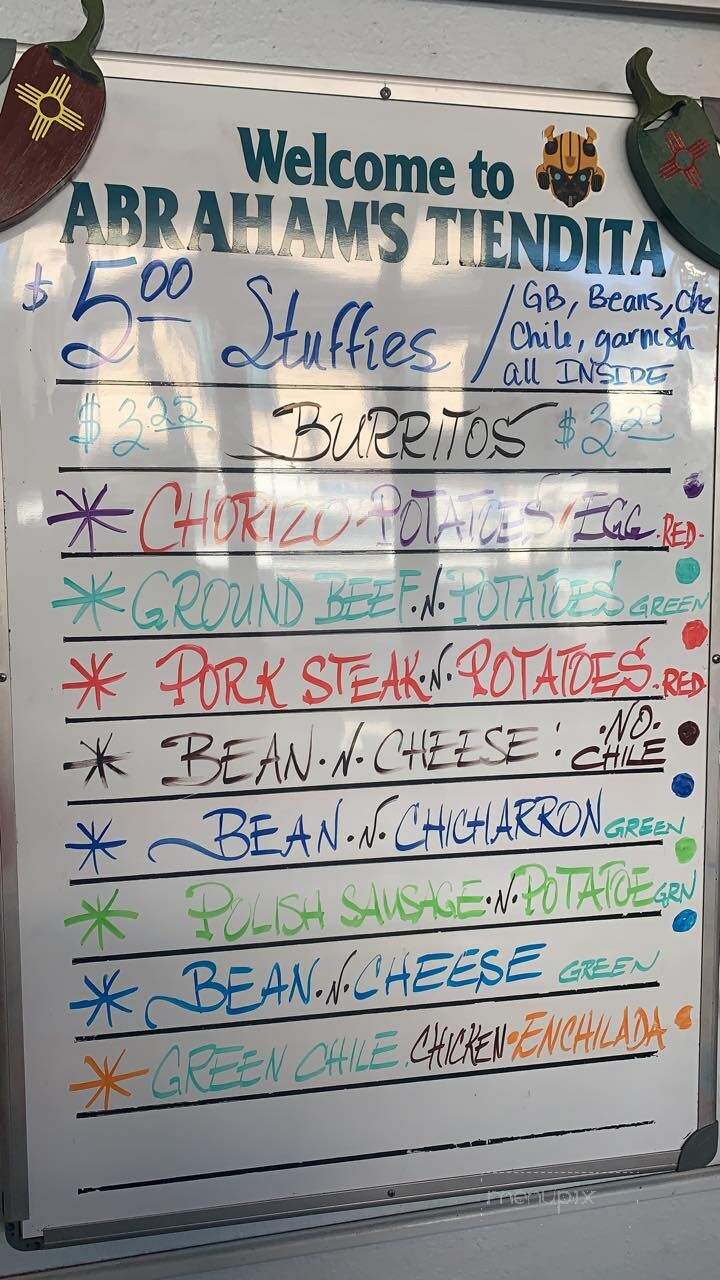 Welcome to
ABRAHAM'S TIENDITA
$ 5.00 Stuffies / GB, Beans, Che
Chile, garnish
all INSIDE
$3.25 BURRITOS $3.25
CHORIZO-POTATOES/EGG -RED-
GROUND BEEF.N.POTATOES GREEN
PORK STEAK.N.POTATOES -RED-
BEAN.N.CHEESE : .NO.
CHILE
BEAN.N.CHICHARRON GREEN
POLISH SAUSAGE.N.POTATOE GRN
BEAN.N.CHEESE GREEN
GREEN CHILE CHICKEN ENCHILADA
menupix